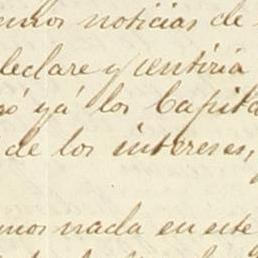 noticias de
declare y sentiria
yá los Capita
de los intereses,
mos nada en este